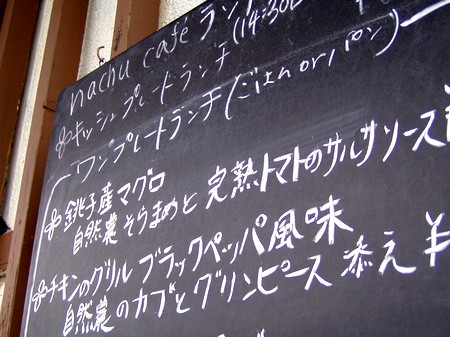 nachu café ラン
キッシュプレートランチ (14:30
ワンプレートランチ (ごはん or パン)
銚子産マグロ
自然農そらまめと完熟トマトのサルサソース ¥
チキンのグリル ブラックペッパ風味
自然農のカブとグリンピース 添え ¥